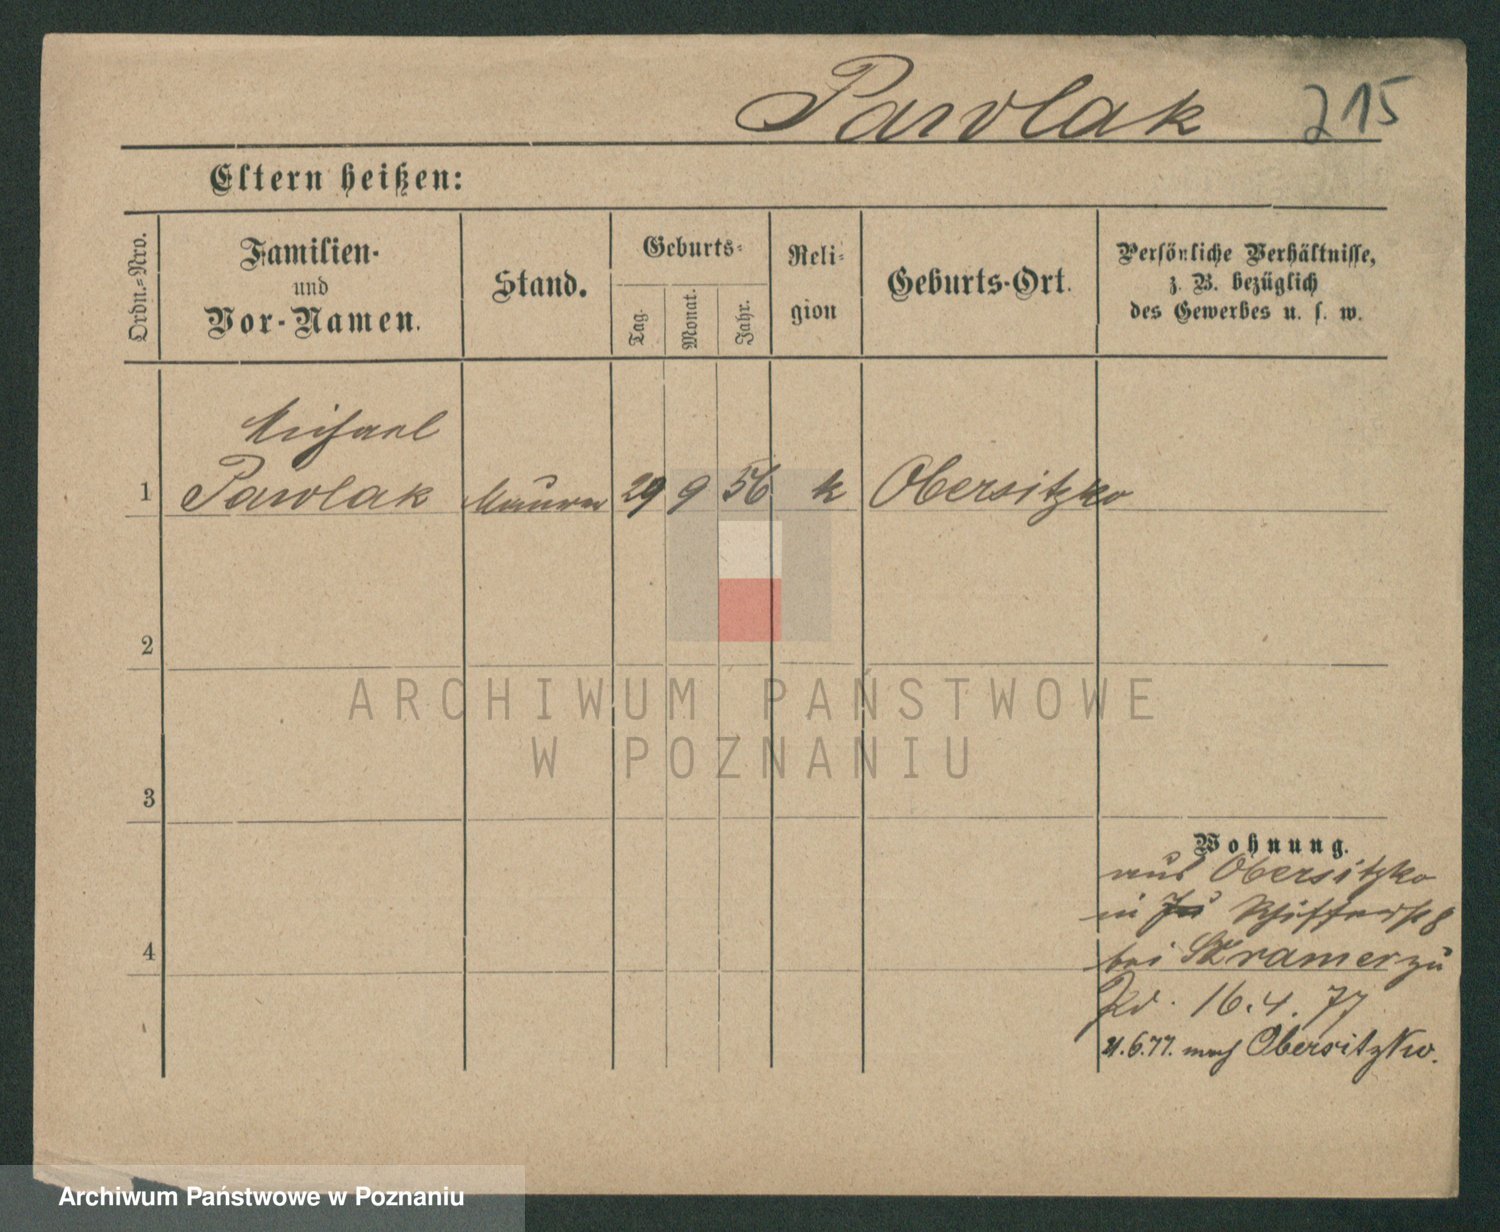 Pawlak 215
Eltern heißen:
Ordn.-Nro.
Familien-
und
Vor-Namen.
Stand.
Geburts-
Tag.
Monat.
Jahr.
Reli-
gion
Geburts-Ort.
Persönliche Verhältnisse,
z. B. bezüglich
des Gewerbes u. s. w.
Michael
1 Pawlak Maurer 29 9 56 k Obersitzko
2
3
4
Wohnung.
aus Obersitzko
in
bei Kramer zu
16.4.77
21.6.77. nach Obersitzko.
ARCHIWUM PAŃSTWOWE
W POZNANIU
Archiwum Państwowe w Poznaniu